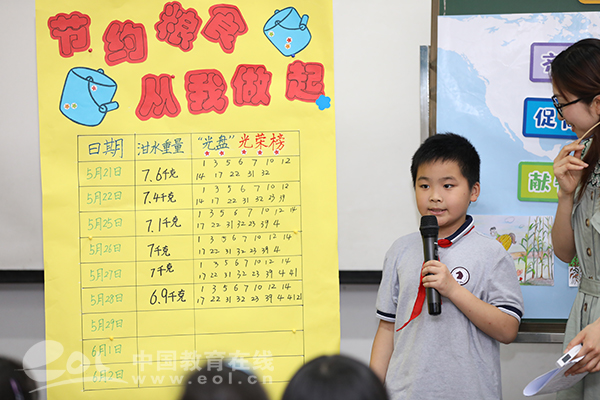 节约粮食
从我做起
日期 泔水重量 "光盘"光荣榜
5月21日 7.6千克 1 3 5 6 7 10 12
14 17 22 31 32
5月22日 7.4千克 1 3 5 6 7 10 12 14
17 22 31 32 39
5月25日 7.1千克 1 3 5 6 7 10 12 14
17 22 31 32 39 4
5月26日 7千克 1 3 5 6 7 10 12 14
17 22 31 32 23 39 4
5月27日 7千克 1 3 5 6 7 10 12 14
17 22 31 32 23 39 4 41
5月28日 6.9千克 1 3 5 6 7 10 12 14
17 22 31 32 23 39 4 41 21
5月29日
6月1日
6月2日
促
献
eol 中国教育在线
www.eol.cn